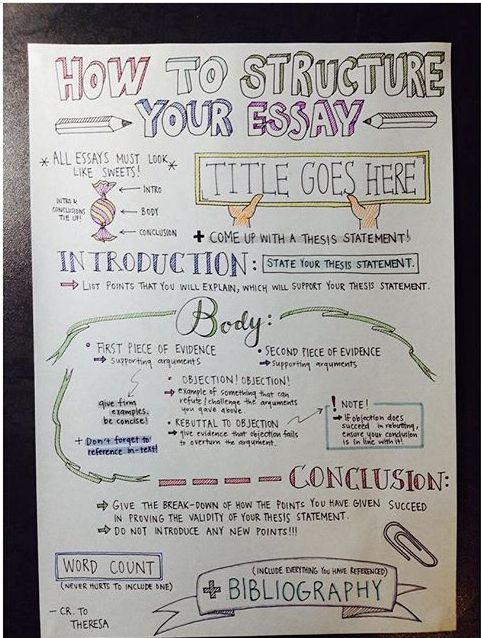 HOW TO STRUCTURE
YOUR ESSAY
* ALL ESSAYS MUST LOOK *
LIKE SWEETS!
INTRO &
CONCLUSIONS
TIE UP!
← INTRO
← BODY
← CONCLUSION
TITLE GOES HERE
+ COME UP WITH A THESIS STATEMENT!
INTRODUCTION: STATE YOUR THESIS STATEMENT.
⇒ LIST POINTS THAT YOU WILL EXPLAIN, WHICH WILL SUPPORT YOUR THESIS STATEMENT.
Body:
• FIRST PIECE OF EVIDENCE
⇒ supporting arguments
• SECOND PIECE OF EVIDENCE
⇒ supporting arguments
give firm
examples,
be concise!
+ Don't forget to
reference in-text!
• OBJECTION! OBJECTION!
⇒ example of something that can
refute/challenge the arguments
you gave above
• REBUTTAL TO OBJECTION
⇒ give evidence that objection fails
to overturn the argument.
! NOTE!
⇒ If objection does
succeed in rebutting,
ensure your conclusion
is in line with it!
CONCLUSION:
⇒ GIVE THE BREAK-DOWN OF HOW THE POINTS YOU HAVE GIVEN SUCCEED
IN PROVING THE VALIDITY OF YOUR THESIS STATEMENT.
⇒ DO NOT INTRODUCE ANY NEW POINTS!!!
WORD COUNT
(NEVER HURTS TO INCLUDE ONE)
(INCLUDE EVERYTHING YOU HAVE REFERENCED)
+ BIBLIOGRAPHY
- CR. TO
THERESA